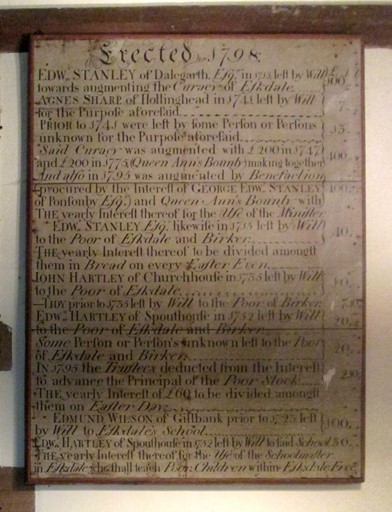 Erected 1798.
EDWD. STANLEY of Dalegarth, Esqr. in left by Will
towards augmenting the Curacy of Eskdale 100.
AGNES SHARP of Hollinghead in 1741 left by Will
for the Purpose aforesaid 7.
PRIOR to 1741 were left by some Person or Persons
unknown for the Purpose aforesaid 13.
Said Curacy was augmented with £200 in 1747
and £200 in 1775 (Queen Ann's Bounty) making together 400.
And also in 1795 was augmented by Benefaction
(procured by the Interest of GEORGE EDWD. STANLEY
of Ponsonby Esqr.) and Queen Ann's Bounty with
THE yearly Interest thereof for the Use of the Minister
EDWD. STANLEY Esqr. likewise in left by Will
to the Poor of Eskdale and Birker 40.
THE yearly Interest thereof to be divided amongst
them in Bread on every Easter Even
JOHN HARTLEY of Churchhouse in 1755 left by Will
to the Poor of Eskdale
prior to 1755 left by Will to the Poor of Birker
EDWD. HARTLEY of Spouthouse in 1752 left by Will
to the Poor of Eskdale and Birker 20.
Some Person or Person's unknown left to the Poor
of Eskdale and Birker 20.
IN 1795 the Trustees deducted from the Interest
to advance the Principal of the Poor Stock
THE yearly Interest of £60 to be divided amongst
them on Easter Day
EDMUND WILSON of Gillbank prior to left
by Will to Eskdale School 100.
EDWD. HARTLEY of Spouthouse in 1752 left by Will to said School
THE yearly Interest thereof for the Use of the Schoolmaster
in Eskdale, who shall teach Poor Children within Eskdale Free